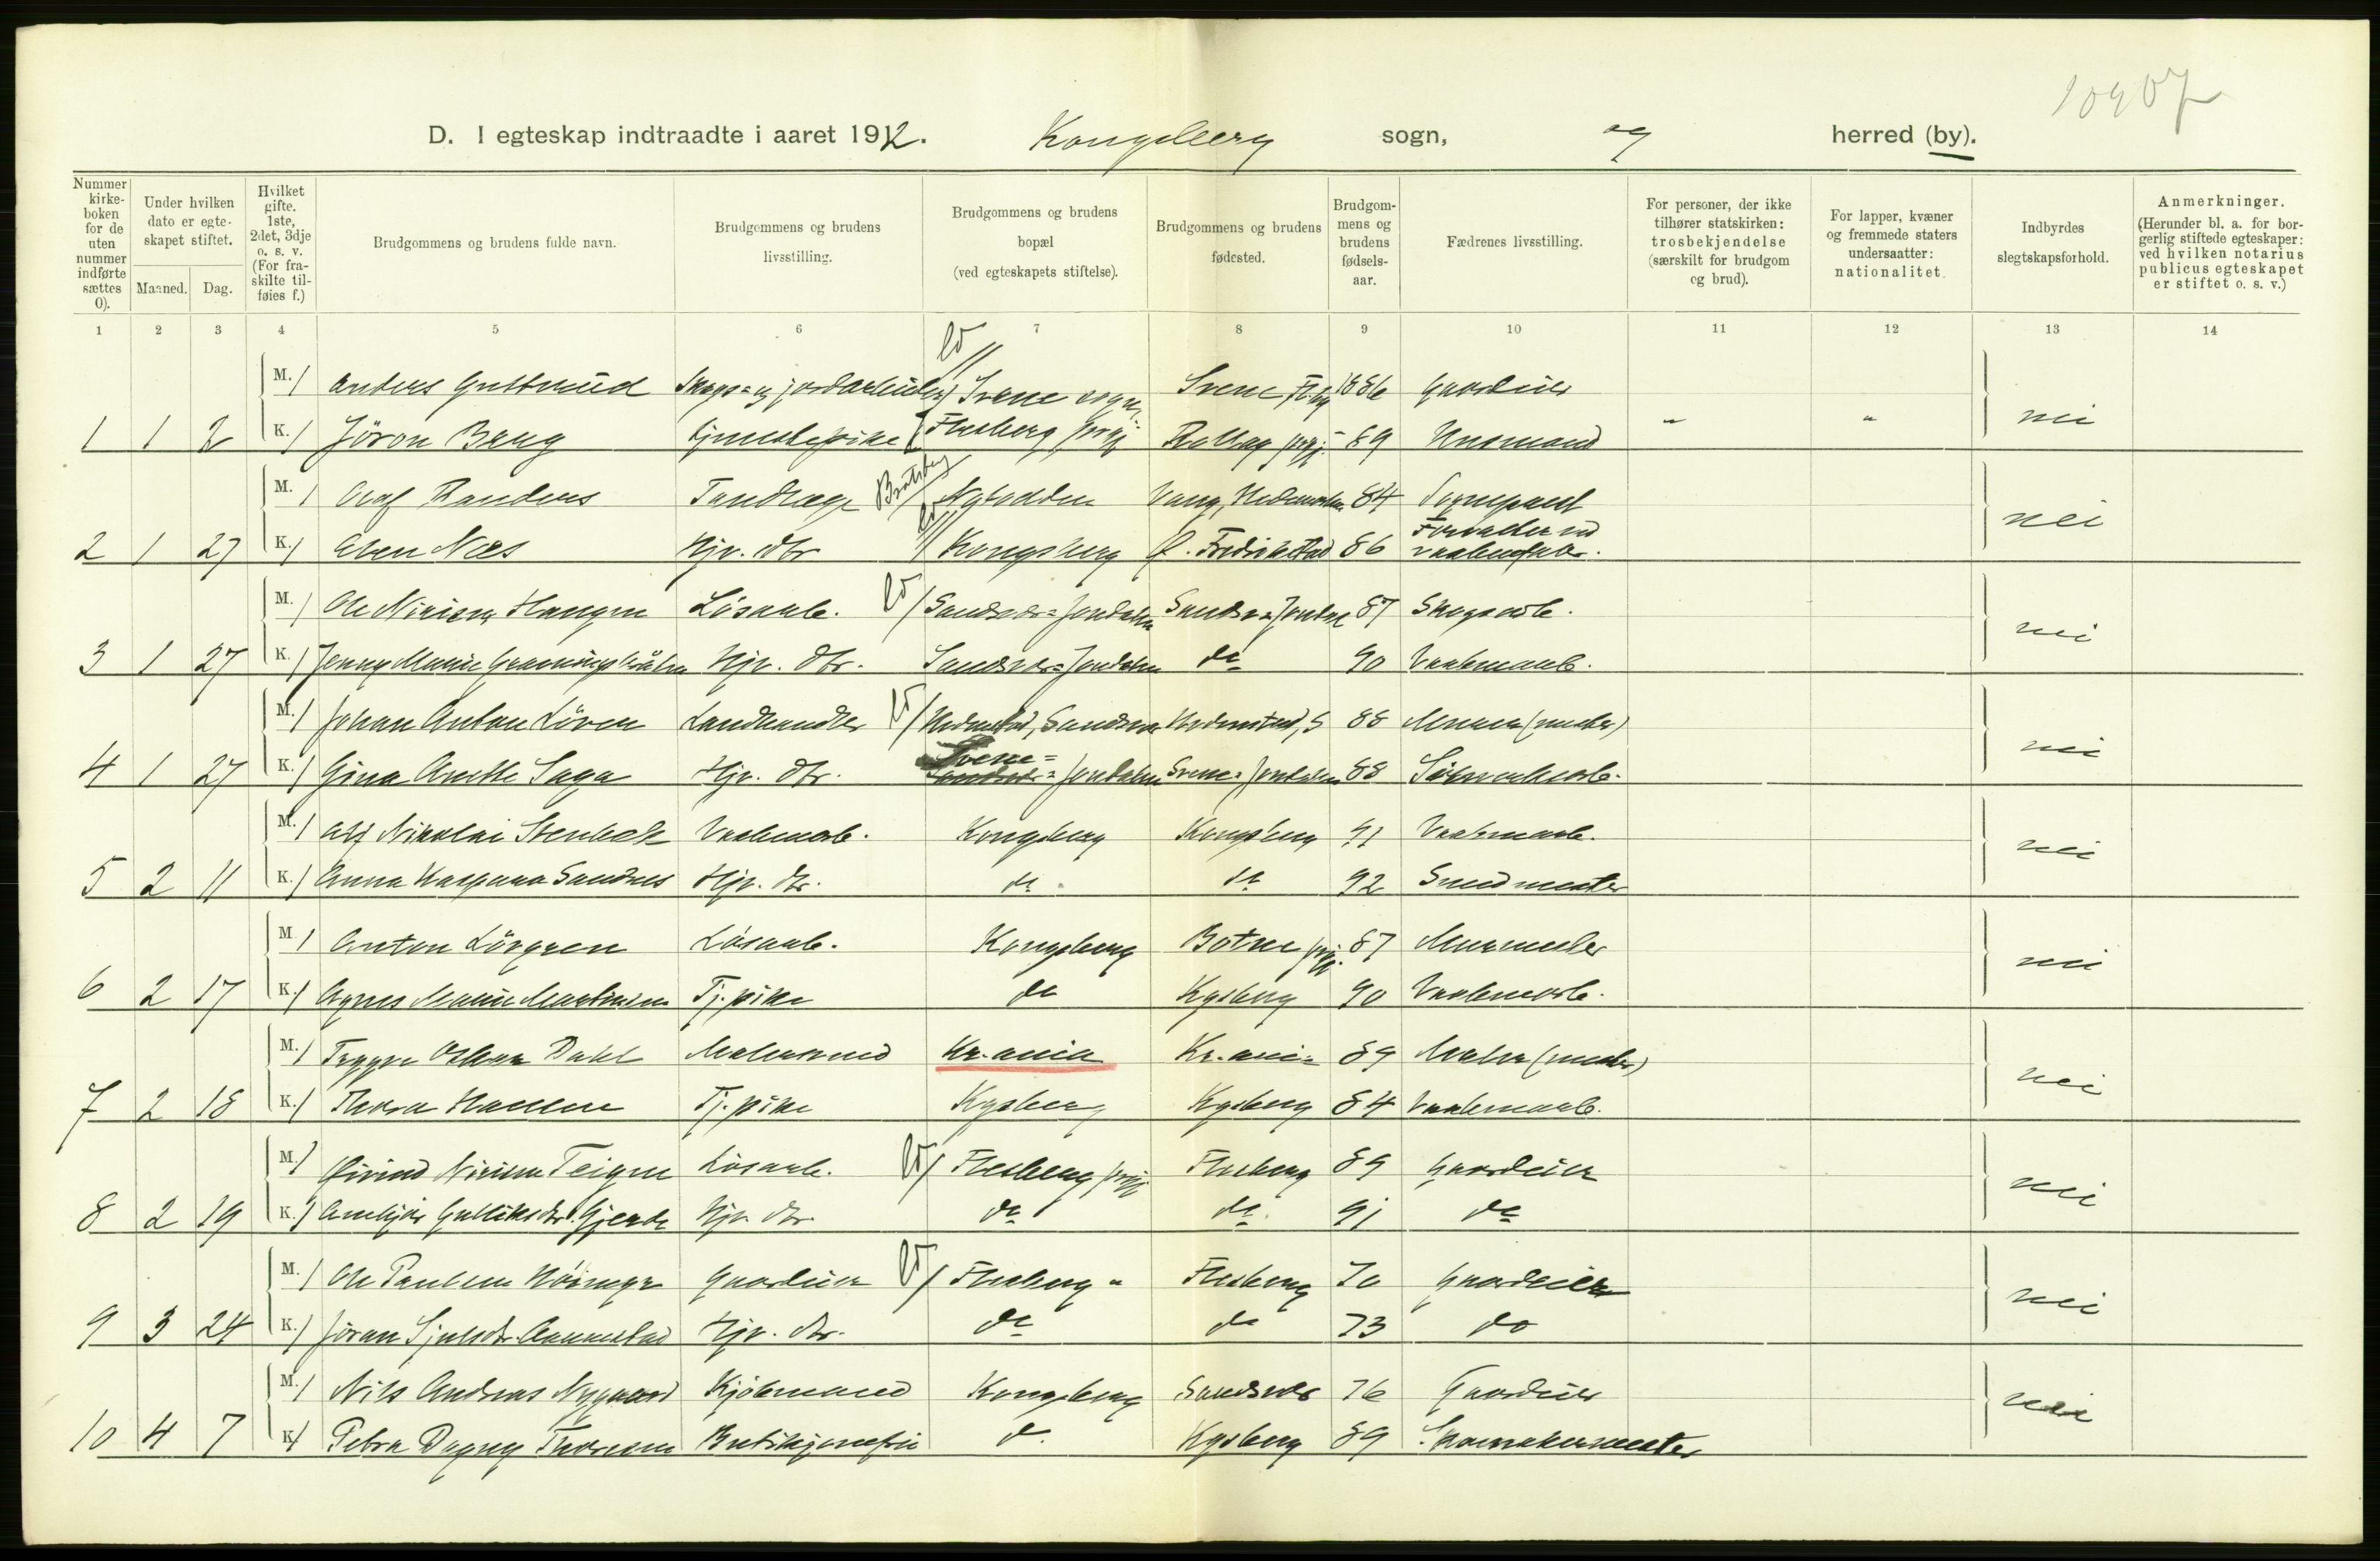 D. I egteskap indtraadte i aaret 1912. Kongsberg sogn, og herred (by).
Nummer kirke-boken for de uten nummer indførte sættes 0).
Under hvilken dato er egte-skapet stiftet.
Maaned. Dag.
Hvilket gifte. 1ste, 2det, 3dje o. s. v. (For fra-skilte til-føies f.)
Brudgommens og brudens fulde navn.
Brudgommens og brudens livsstilling.
Brudgommens og brudens bopæl (ved egteskapets stiftelse).
Brudgommens og brudens fødested.
Brudgom-mens og brudens fødsels-aar.
Fædrenes livsstilling.
For personer, der ikke tilhører statskirken: trosbekjendelse (særskilt for brudgom og brud).
For lapper, kvæner og fremmede staters undersaatter: nationalitet.
Indbyrdes slegtskapsforhold.
Anmerkninger. (Herunder bl. a. for bor-gerlig stiftede egteskaper: ved hvilken notarius publicus egteskapet er stiftet o. s. v.)
1 2 3 4 5 6 7 8 9 10 11 12 13 14
M. 1 Anders Svene sogn Svene 1886 Gaardeier
1 1 2 K. 1 Jöron Berg Tjenestepike Flesberg prgj Rollag prgj. 89 Husmand " " nei
M. 1 Olaf Randers Tandlæge Bratsberg Notodden Vang, Hedemarken 84 Sogneprest
2 1 27 K. 1 Næs Hjv. dtr Kongsberg Fredrikstad 86 Forvalter ved vaabenfabr. nei
M. 1 Ole Nirisen Haugen Lösarb. Sandsvær=Jondalen 87 Skogsarb.
3 1 27 K. 1 Jenny Marie Hjv. dtr. Sandsvær=Jondalen do 90 Vaabenarb. nei
M. 1 Johan Anton Löver Landhandler Hedenstad, Sandsvær Hedenstad, S 88 Murer (mester)
4 1 27 K. 1 Gina Anette Saga Hjv. dtr. Svene= Jondalen Svene= Jondalen 88 nei
M. 1 Alf Nikolai Stenbek Vaabenarb. Kongsberg Kongsberg 91 Vaabenarb.
5 2 11 K. 1 Anna Kaspara Sandnes Hjv. dtr. do do 92 Smedmester nei
M. 1 Anton Lövgren Lösarb. Kongsberg Botne prgj. 87 Murmester
6 2 17 K. 1 Agnes Marie Martinsen Tj. pike do Kgsberg 90 Vaabenarb. nei
M. 1 Trygve Oskar Dahl Malersvend Kr.ania Kr.ania 89 Maler (mester)
7 2 18 K. 1 Thora Hansen Tj. pike Kgsberg Kgsberg 84 Vaabenarb. nei
M. 1 Eivind Nirisen Teigen Lösarb. Flesberg prgj Flesberg 89 Gaardeier
8 2 19 K. 1 Gulliksdtr. Gjerde Hjv. dtr. do do 91 do nei
M. 1 Ole Paulsen Gaardeier Flesberg " Flesberg 70 Gaardeier
9 3 24 K. 1 Jöran Hjv. dtr. do do 73 do nei
M. 1 Nils Andreas Nygaard Kjöbmand Kongsberg Sandsvær 76 Gaardeier
10 4 7 K. 1 Petra Dagny Thoresen Butikjomfru do Kgsberg 89 Skomakermester nei